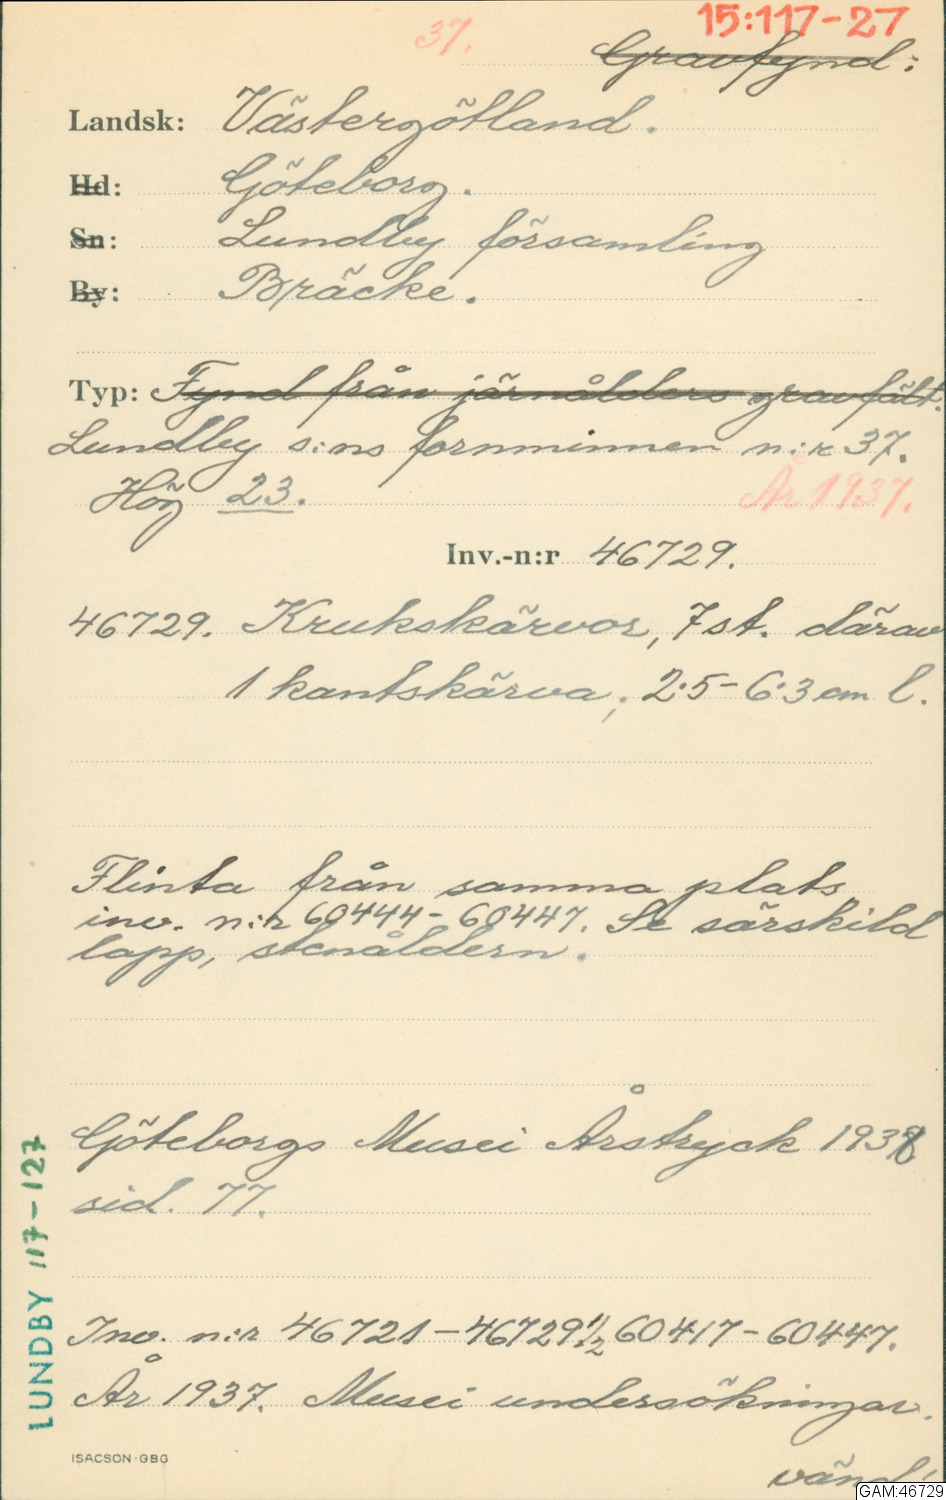 15:117-27
37.
Gravfynd:
Landsk: Västergötland.
Hd: Göteborg.
Sn: Lundby församling
By: Bräcke.
Typ: Fynd från järnålders gravfält.
Lundby s:ns fornminnen n:r 37.
Hög 23.
År 1937.
Inv.-n:r 46729.
46729. Krukskärvor, 7 st. därav
1 kantskärva; 2·5-6·3 cm l.
Flinta från samma plats
inv. n:r 60444-60447. Se särskild
lapp, stenåldern.
Göteborgs Musei Årstryck 1938
sid. 77.
Inv. n:r 46721-46729 1/2, 60417-60447.
År 1937. Musei undersökningar.
vänd!
ISACSON·GBG
LUNDBY 117-127
GAM:46729